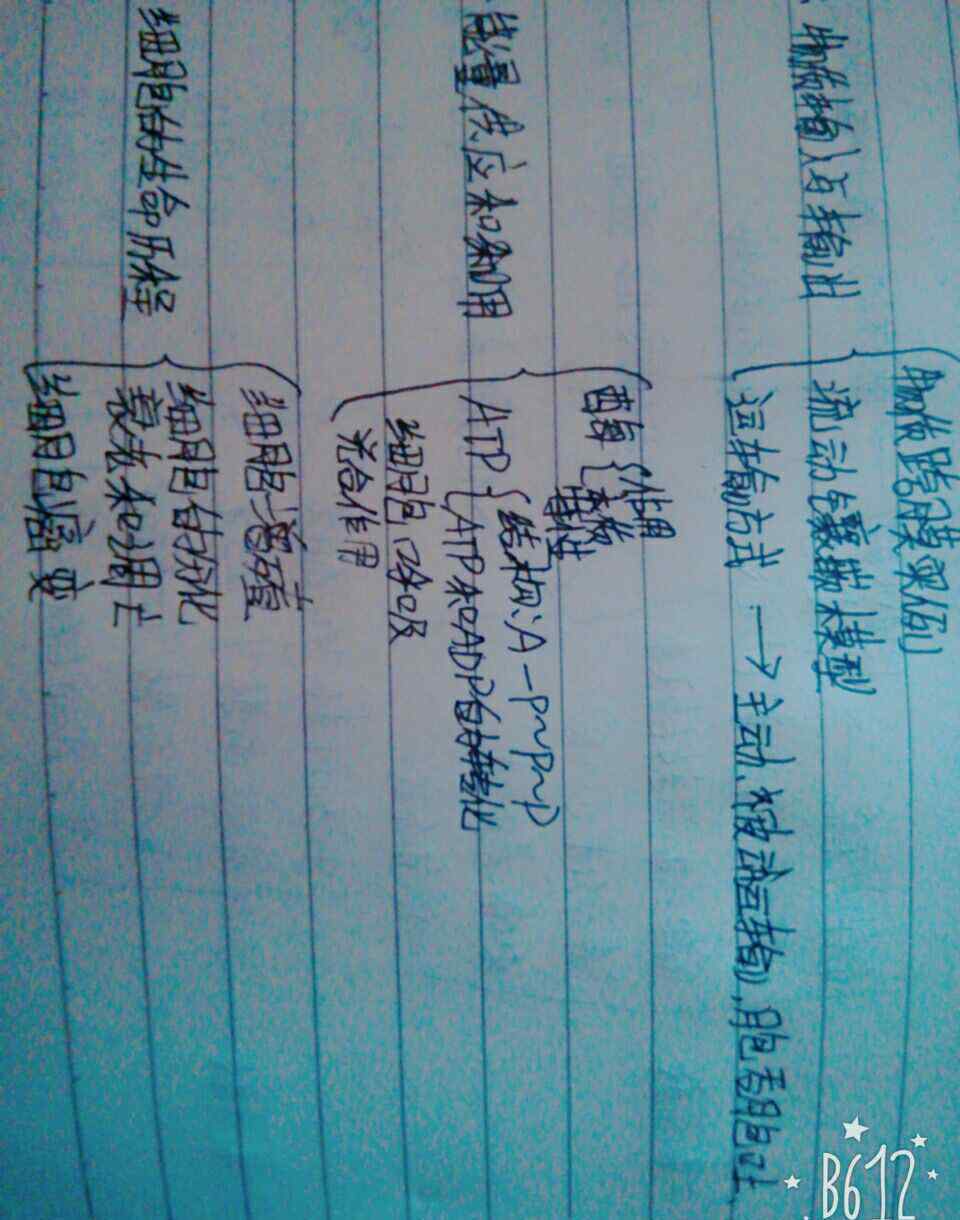 物质输入与输出
物质跨膜实例
流动镶嵌模型
运输方式 → 主动、被动运输、胞吞胞吐
能量供应和利用
酶
作用
本质
特性
ATP
结构:A-P~P~P
ATP和ADP的转化
细胞呼吸
光合作用
细胞的生命历程
细胞增殖
细胞的分化
衰老和凋亡
细胞癌变
B612